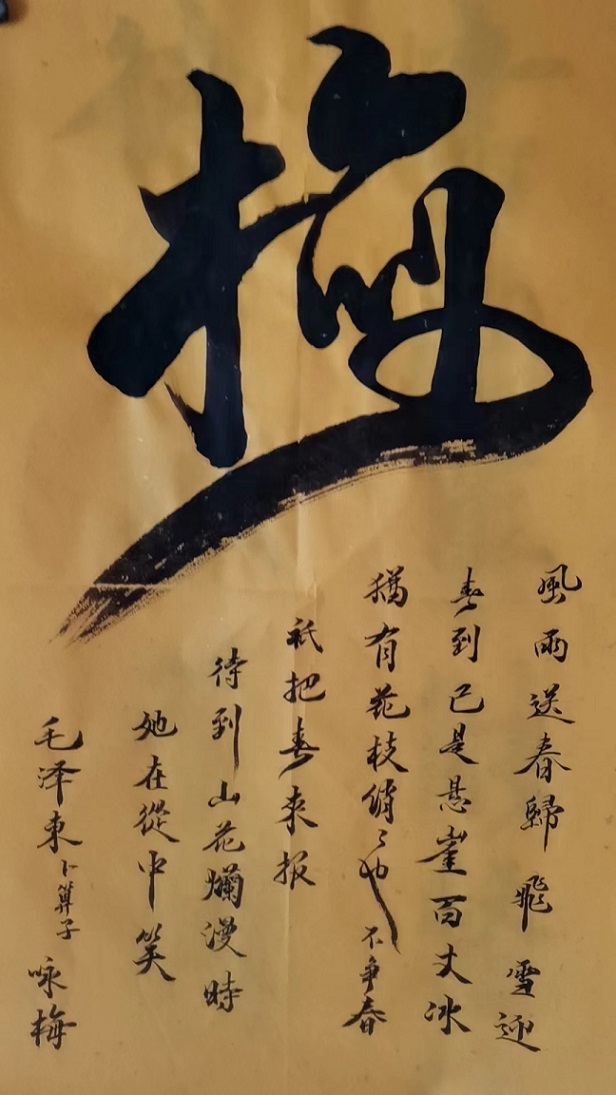 梅
風雨送春歸 飛雪迎
春到已是悬崖百丈冰
猶有花枝俏々也不争春
祇把春来报
待到山花爛漫時
她在從中笑
毛泽東 卜算子 咏梅